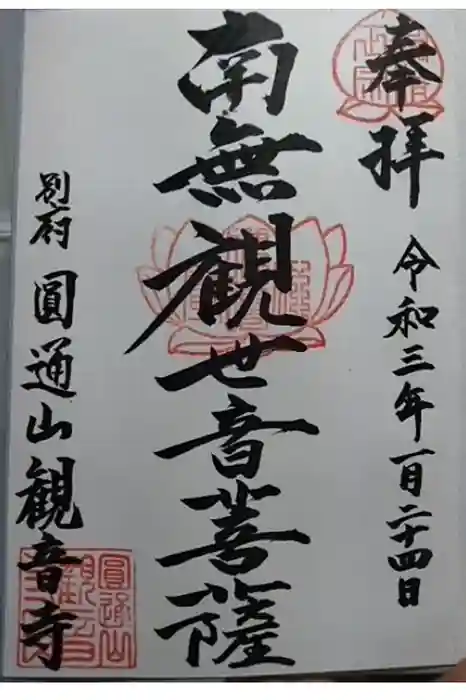 奉拝
令和三年一月二十四日
南無観世音菩薩
別府 圓通山観音寺
圓通山